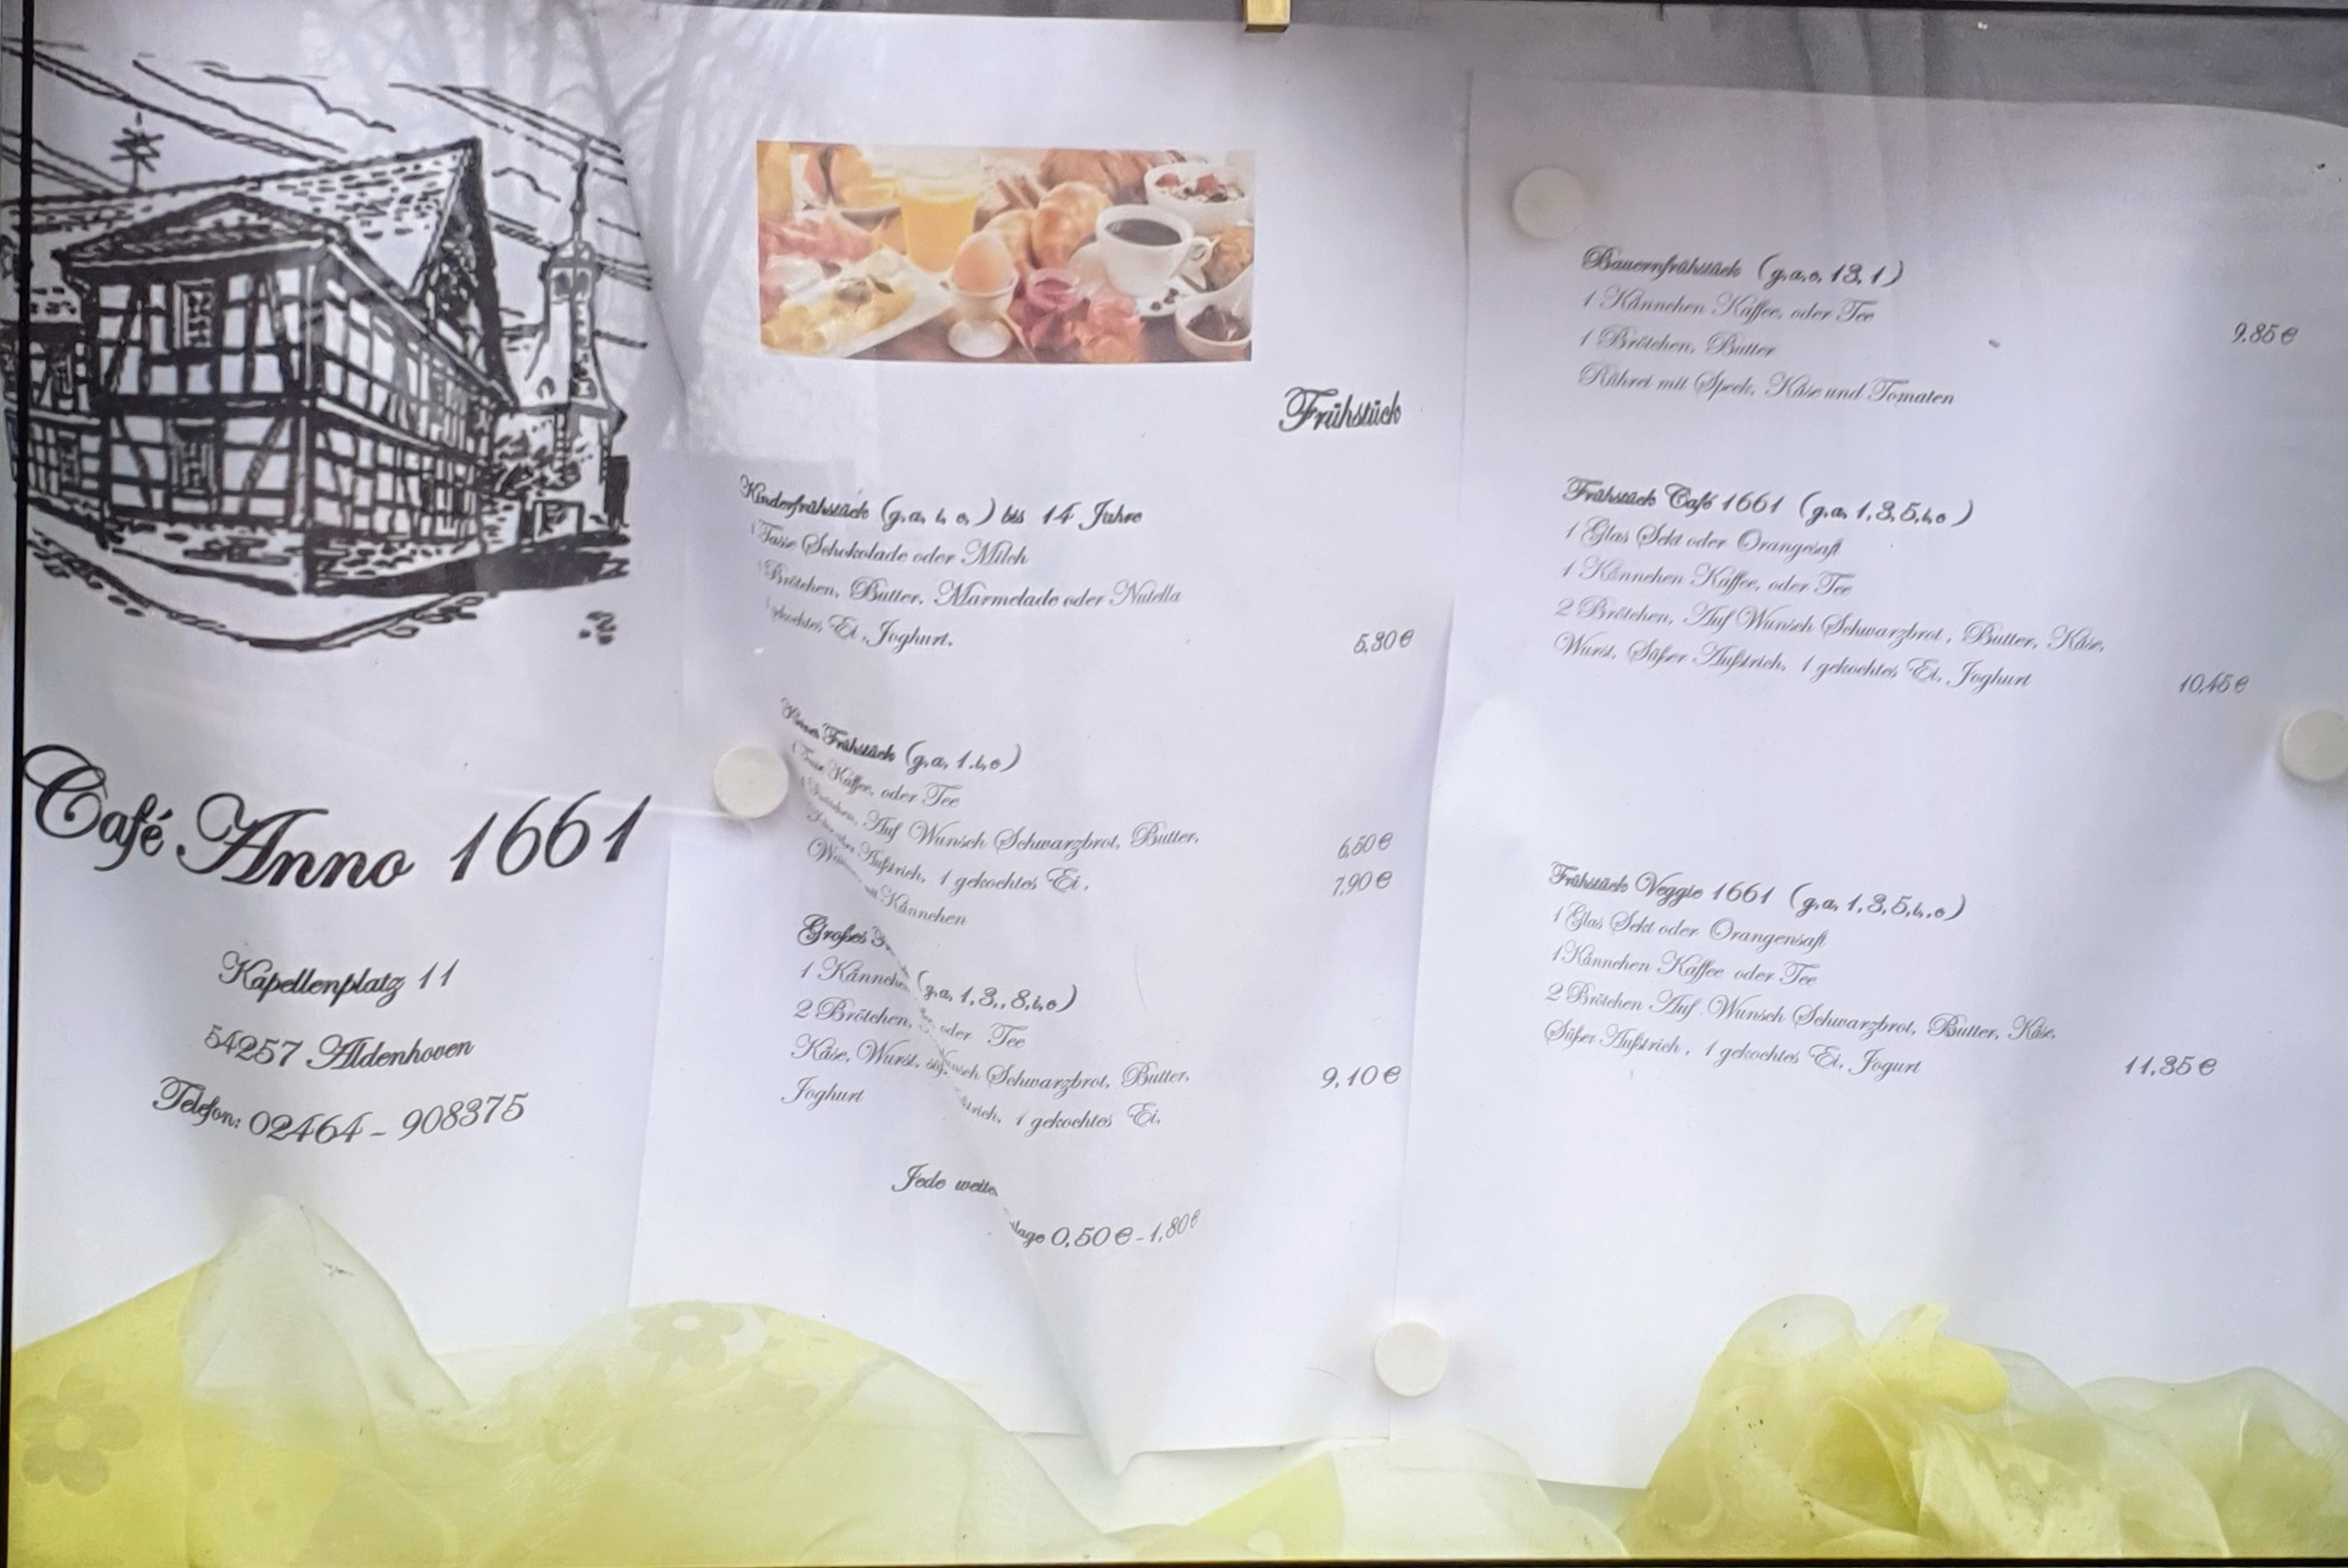 Café Anno 1661
Kapellenplatz 11
54257 Aldenhoven
Telefon: 02464 - 908375
Frühstück
Kinderfrühstück (g,a, i, c, ) bis 14 Jahre
1 Tasse Schokolade oder Milch
Brötchen, Butter, Marmelade oder Nutella
gekochtes Ei, Joghurt. 5,30€
Frühstück (g,a, 1,i,c)
1 Tasse Kaffee, oder Tee
Auf Wunsch Schwarzbrot, Butter, 6,50€
Aufstrich, 1 gekochtes Ei, 7,90€
Kännchen
Großes (g,a, 1,3,,8,i,c)
1 Kännchen oder Tee
2 Brötchen, Schwarzbrot, Butter,
Käse, Wurst, 1 gekochtes Ei, 9,10€
Joghurt
Jede
0,50€ - 1,80€
Bauernfrühstück (g,a,c, 13, 1)
1 Kännchen Kaffee, oder Tee
1 Brötchen, Butter 9,85€
Rührei mit Speck, Käse und Tomaten
Frühstück Café 1661 (g,a, 1,3,5,i,c)
1 Glas Sekt oder Orangesaft
1 Kännchen Kaffee, oder Tee
2 Brötchen, Auf Wunsch Schwarzbrot, Butter, Käse,
Wurst, Süßer Aufstrich, 1 gekochtes Ei, Joghurt 10,45€
Frühstück Veggie 1661 (g,a, 1,3,5,i,,c)
1 Glas Sekt oder Orangensaft
1 Kännchen Kaffee oder Tee
2 Brötchen Auf Wunsch Schwarzbrot, Butter, Käse,
Süßer Aufstrich, 1 gekochtes Ei, Jogurt 11,35€